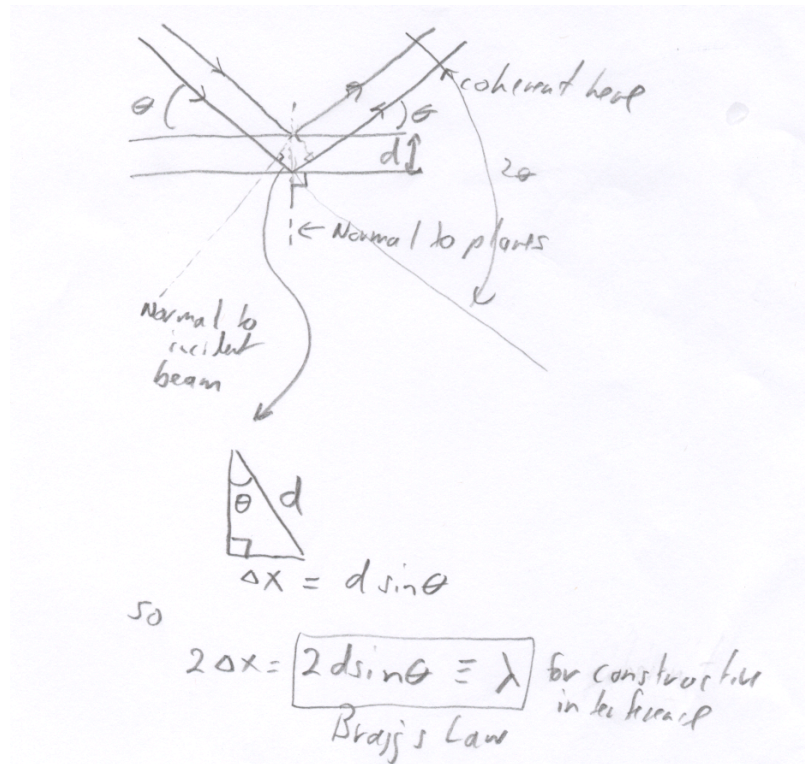 coherent here
θ
θ
d
2θ
Normal to planes
Normal to
incident
beam
θ
d
Δx = d sinθ
so
2Δx = 2dsinθ ≡ λ for constructive
interference
Bragg's Law